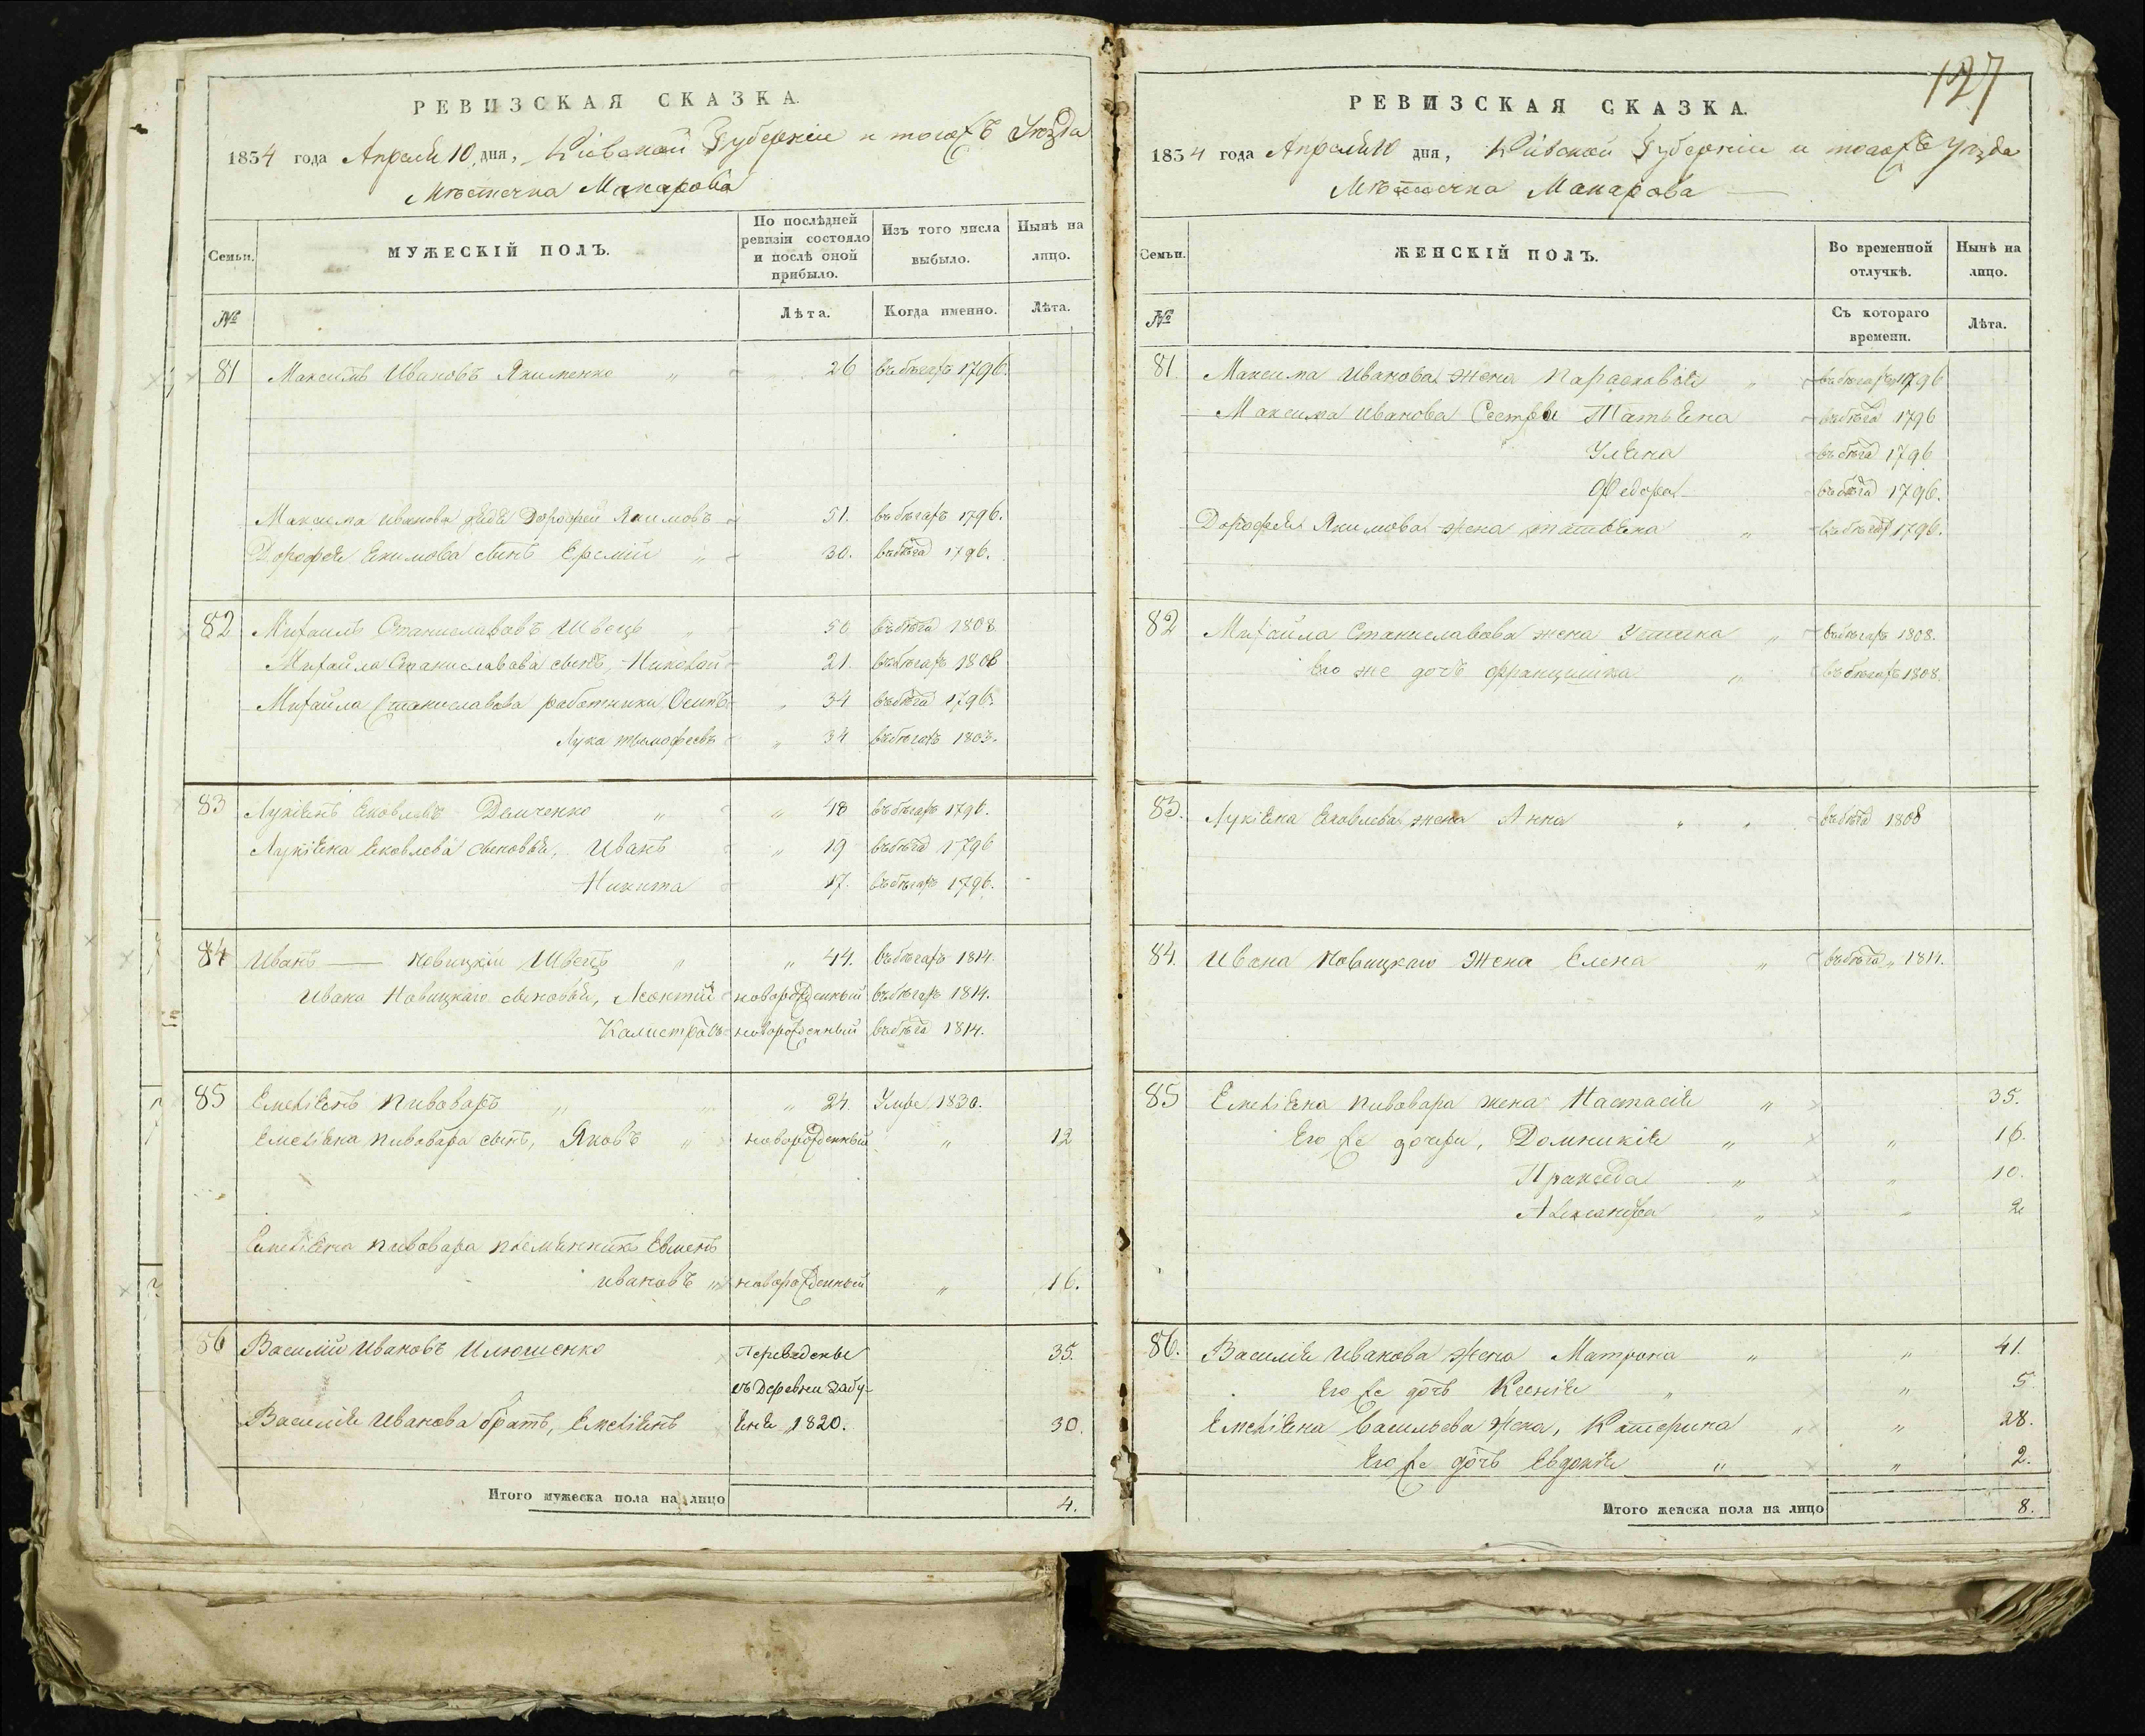 РЕВИЗСКАЯ СКАЗКА.
1834 года Апреля 10 дня, Кіевской Губерніи и тогожъ Уезда
Мѣстечка Макарова
Семьи.
МУЖЕСКІЙ ПОЛЪ.
По послѣдней ревизіи состояло и послѣ оной прибыло.
Изъ того числа выбыло.
Нынѣ на лицо.
№
Лѣта.
Когда именно.
Лѣта.
81 Максимъ Ивановъ Якименко „ 26 въ бѣгахъ 1796.
Максима Иванова дядя Дорофей Якимовъ 51. въ бѣгахъ 1796.
Дорофея Екимова сынъ Еремій „ 30. въ бѣгахъ 1796.
82 Михаилъ Станиславовъ Швецъ „ 50 въ бѣгахъ 1808
Михайла Станиславова сынъ, Николай 21. въ бѣгахъ 1808
Михайла Станиславова работники, Осипъ „ 34 въ бѣгахъ 1796.
Лука Тимофеевъ „ 34 въ бѣгахъ 1803.
83 Лукіянъ Яковлевъ Демченко „ „ 48 въ бѣгахъ 1796.
Лукіяна Яковлева сыновья, Иванъ „ 19 въ бѣгахъ 1796
Никита 17. въ бѣгахъ 1796.
84 Иванъ — Новицкій Швецъ „ „ 44. въ бѣгахъ 1814.
Ивана Новицкаго сыновья, Леонтий новорожденный въ бѣгахъ 1814.
Калистратъ новорожденный въ бѣгахъ 1814.
85 Емельянъ Пивоваръ „ „ 24. Умре 1830.
Емельяна Пивовара сынъ, Яковъ „ новорожденный „ 12
Емельяна Пивовара племянникъ Евменъ
Ивановъ „ новорожденный „ 16.
86 Василий Ивановъ Илюшенко Переведены 35.
съ Деревни Забу-
Василія Иванова братъ, Емельянъ янья 1820. 30.
Итого мужеска пола на лицо 4.
127
РЕВИЗСКАЯ СКАЗКА.
1834 года Апреля 10 дня, Кіевской Губерніи и тогожъ Уезда
Мѣстечка Макарова —
Семьи.
ЖЕНСКІЙ ПОЛЪ.
Во временной отлучкѣ.
Нынѣ на лицо.
№
Съ котораго времени.
Лѣта.
81. Максима Иванова жена Парасковія „ въ бѣгахъ 1796
Максима Иванова Сестры Татьяна въ бѣгахъ 1796
Уляна въ бѣгахъ 1796
Федора въ бѣгахъ 1796.
Дорофея Якимова жена Татьяна „ въ бѣгахъ 1796.
82 Михайла Станиславова жена Устина „ въ бѣгахъ 1808.
Его же дочь Францишка „ въ бѣгахъ 1808.
83. Лукіяна Яковлева жена Анна „ „ въ бѣгахъ 1808
84. Ивана Новицкаго жена Елена „ въ бѣгахъ 1814.
85 Емельяна Пивовара жена Настасія „ 35.
Его же дочери, Домникія „ „ 16.
Праксѣда „ „ 10.
Александра „ „ 2
86. Василія Иванова жена Матрона „ „ 41.
Его же дочь Ксенія „ „ 5
Емельяна Васильева жена, Катерина „ „ 28.
Его же дочь Евдокія „ „ 2.
Итого женска пола на лицо 8.